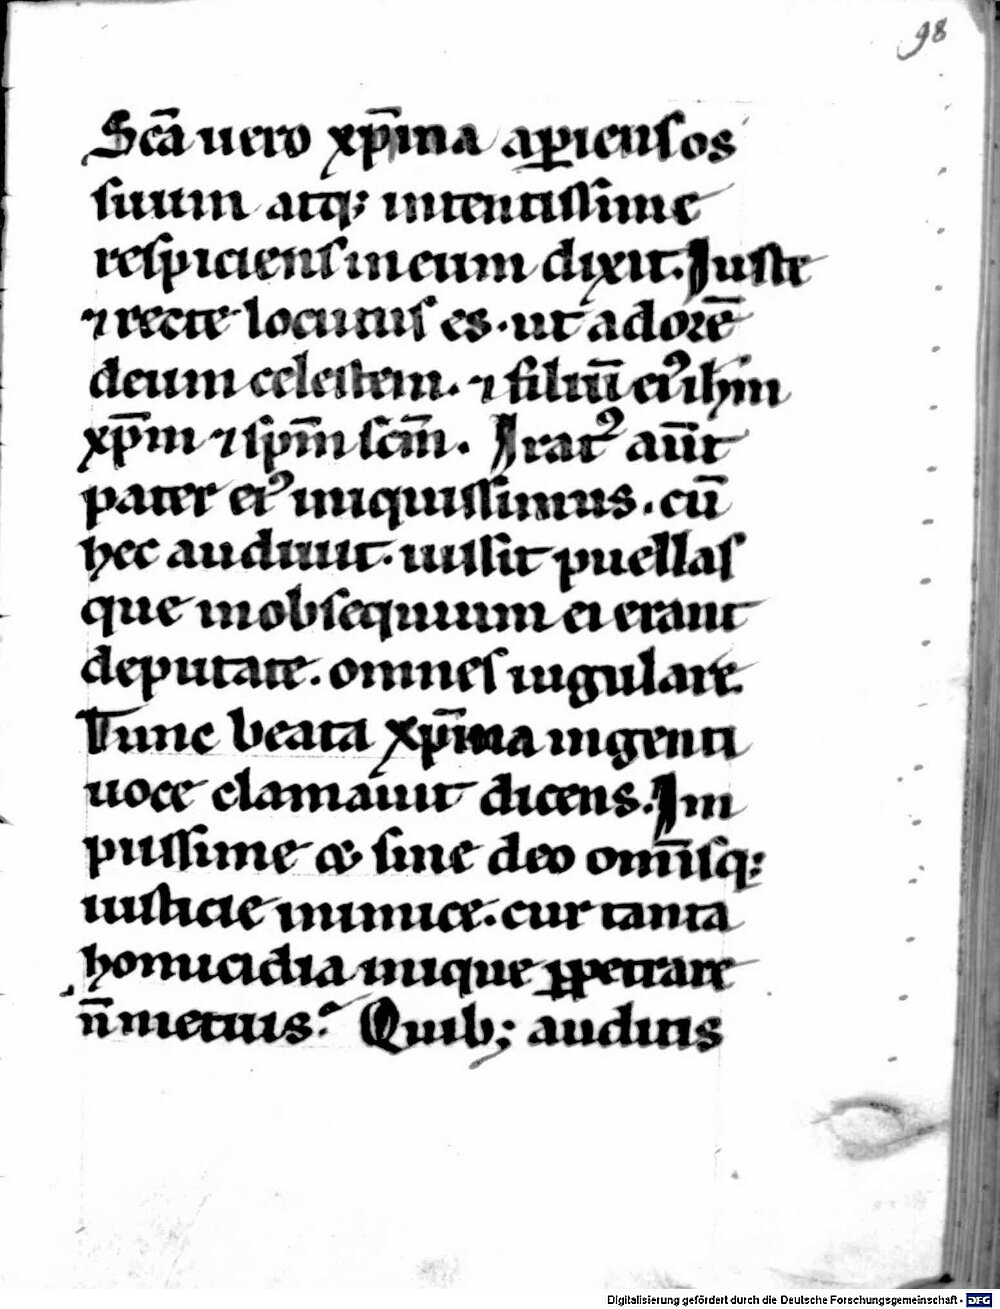 98
Scā uero xp̄ina aꝑienſ os
ſuum atq; intentiſſime
reſpicienſ in eum dixit. Juſte
⁊ recte locutuſ es. ut adorē
deum celeſtem. ⁊ filiū eiꝰ ihm̄
xp̄m ⁊ ſpm̄ ſcm̄. Iratꝰ aūt
pater eiꝰ iniquiſſimus. cū
hec audiuit. iuſſit puellaſ
que in obſequium ei erant
deputate. omneſ iugulare.
Tunc beata xp̄ina ingenti
uoce clamauit dicens. Im
piiſſime & ſine deo omīſq;
iuſticie inimice. cur tanta
homicidia inique ꝑpetrare
n̄ metuis? Quib; auditis
Digitalisierung gefördert durch die Deutsche Forschungsgemeinschaft - DFG